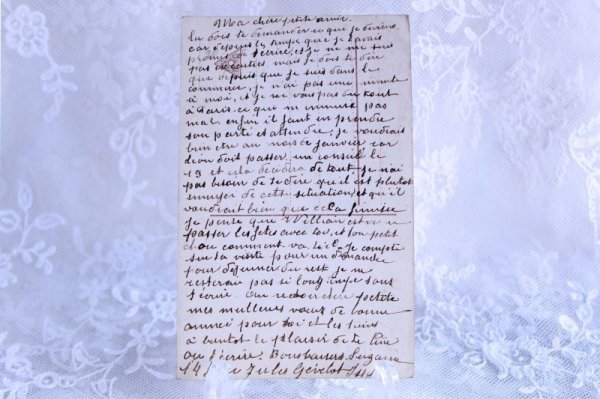 Ma chère petite amie.
tu dois te demander ce que je deviens
car depuis le temps que je t'avais
promis de t'écrire, et je ne me suis
pas exécutée, mais je dois te dire
que depuis que je suis dans le
commerce, je n'ai pas une minute
à moi, et je ne vais pas du tout
à Paris. ce qui m'ennuie pas
mal. enfin il faut en prendre
son parti et attendre, je voudrais
bien être au mois de janvier car
Léon doit passer un conseil le
13 et cela décidera de tout. je n'ai
pas besoin de te dire qu'il est plutot
ennuyé de cette situation, et qu'il
voudrait bien que cela finisse
Je pense que William est venu
passer les fêtes avec toi, et ton petit
chou comment va t-il, Je compte
sur ta visite pour un dimanche
pour déjeuner du reste je ne
resterai pas si longtemps sans
t'écrire. Que chère petite
mes meilleurs vœux de bonne
année pour toi et les tiens
à bientot le plaisir de te lire
ou t'écrire. Bons baisers. Suzanne
14 Jules Gévelot Issy